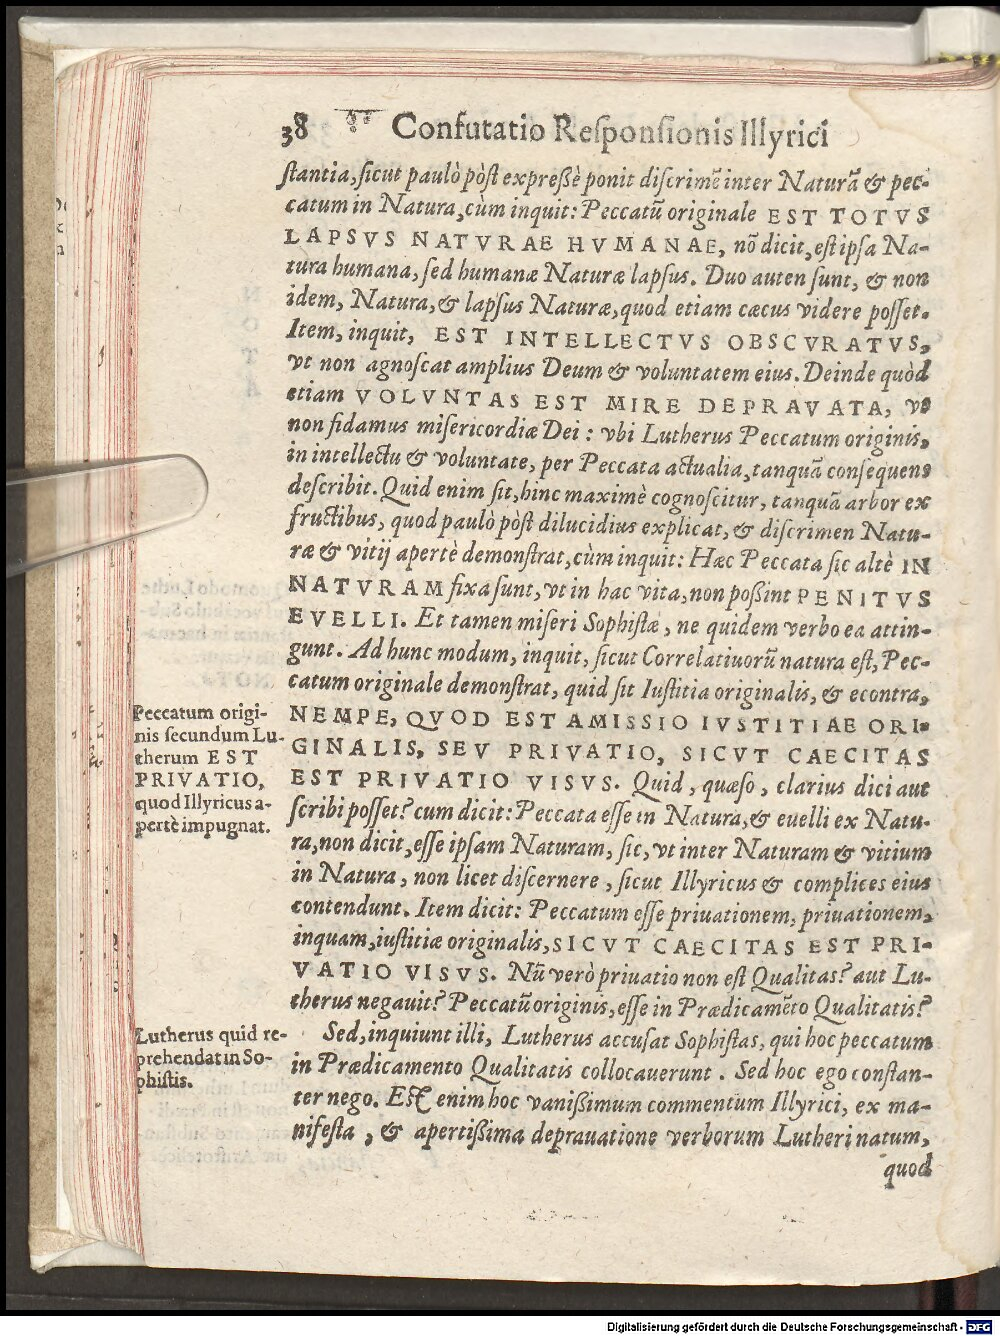 38 Confutatio Reſponſionis Illyrici
ſtantia, ſicut paulò pòſt expreßè ponit diſcrimē inter Naturā & pec-
catum in Natura, cùm inquit: Peccatū originale EST TOTVS
LAPSVS NATVRAE HVMANAE, nō dicit, eſt ipſa Na-
tura humana, ſed humanæ Naturæ lapſus. Duo auten ſunt, & non
idem, Natura, & lapſus Naturæ, quod etiam cæcus videre poſſet.
Item, inquit, EST INTELLECTVS OBSCVRATVS,
vt non agnoſcat amplius Deum & voluntatem eius. Deinde quòd
etiam VOLVNTAS EST MIRE DEPRAVATA, vt
non fidamus miſericordiæ Dei: vbi Lutherus Peccatum originis,
in intellectu & voluntate, per Peccata actualia, tanquā conſequens
deſcribit. Quid enim ſit, hinc maximè cognoſcitur, tanquā arbor ex
fructibus, quod paulò pòſt dilucidius explicat, & diſcrimen Natu-
ræ & vitij apertè demonſtrat, cùm inquit: Hæc Peccata ſic altè IN
NATVRAM fixa ſunt, vt in hac vita, non poßint PENITVS
EVELLI. Et tamen miſeri Sophiſtæ, ne quidem verbo ea attin-
gunt. Ad hunc modum, inquit, ſicut Correlatiuorū natura eſt, Pec-
catum originale demonſtrat, quid ſit Iuſtitia originalis, & econtra,
NEMPE, QVOD EST AMISSIO IVSTITIAE ORI-
GINALIS, SEV PRIVATIO, SICVT CAECITAS
EST PRIVATIO VISVS. Quid, quæſo, clarius dici aut
ſcribi poſſet? cum dicit: Peccata eſſe in Natura, & euelli ex Natu-
ra, non dicit, eſſe ipſam Naturam, ſic, vt inter Naturam & vitium
in Natura, non licet diſcernere, ſicut Illyricus & complices eius
contendunt. Item dicit: Peccatum eſſe priuationem, priuationem,
inquam, iuſtitiæ originalis, SICVT CAECITAS EST PRI-
VATIO VISVS. Nū verò priuatio non eſt Qualitas? aut Lu-
therus negauit? Peccatū originis, eſſe in Prædicamēto Qualitatis?
Sed, inquiunt illi, Lutherus accuſat Sophiſtas, qui hoc peccatum
in Prædicamento Qualitatis collocauerunt. Sed hoc ego conſtan-
ter nego. Eſt enim hoc vanißimum commentum Illyrici, ex ma-
nifeſta, & apertißima deprauatione verborum Lutheri natum,
quod
Peccatum origi-
nis ſecundum Lu-
therum EST
PRIVATIO,
quod Illyricus a-
pertè impugnat.
Lutherus quid re-
prehendat in So-
phiſtis.
Digitalisierung gefördert durch die Deutsche Forschungsgemeinschaft - DFG